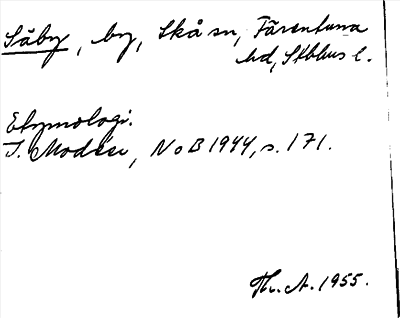 Säby, by, Skå sn, Färentuna
hd, Sthlms l.
Etymologi.
I. Modéer, NoB 1944, s. 171.
Th. A. 1955.